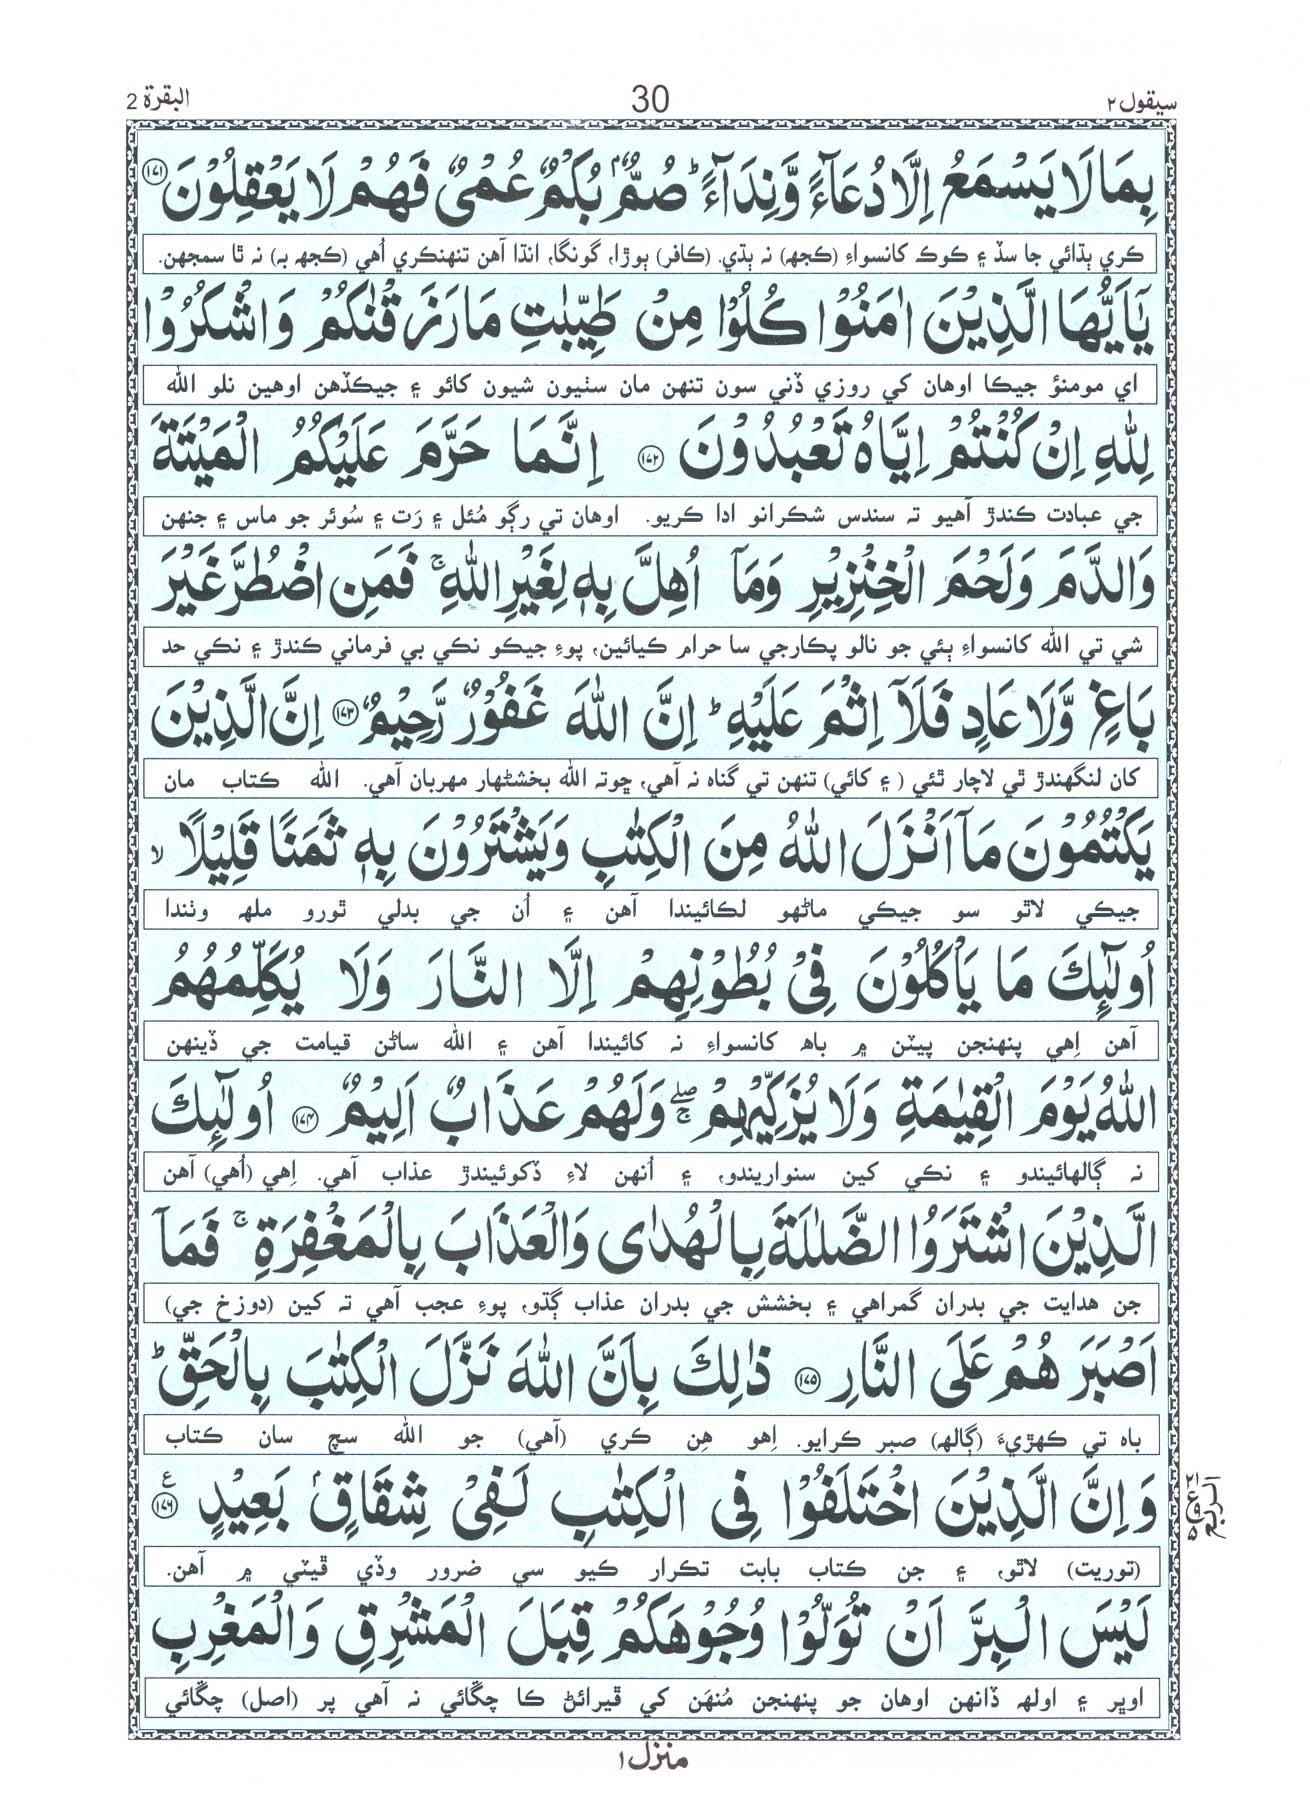 سيقول ٢
30
البقرة 2
بِمَا لَا يَسْمَعُ اِلَّا دُعَآءً وَّنِدَآءً ؕ صُمٌّۢ بُكْمٌ عُمْيٌ فَهُمْ لَا يَعْقِلُوْنَ ﴿۱۷۱﴾
ڪري ٻڌائي جا سڏ ۽ ڪوڪ کانسواءِ (ڪجهہ) نہ ٻڌي. (ڪافر) ٻوڙا، گونگا، انڌا آهن تنهنڪري اُهي (ڪجهہ بہ) نہ ٿا سمجهن.
يٰٓاَيُّهَا الَّذِيْنَ اٰمَنُوْا كُلُوْا مِنْ طَيِّبٰتِ مَا رَزَقْنٰكُمْ وَاشْكُرُوْا
اي مومنؤ جيڪا اوهان کي روزي ڏني سون تنهن مان سٺيون شيون کائو ۽ جيڪڏهن اوهين نلو الله
لِلّٰهِ اِنْ كُنْتُمْ اِيَّاهُ تَعْبُدُوْنَ ﴿۱۷۲﴾ اِنَّمَا حَرَّمَ عَلَيْكُمُ الْمَيْتَةَ
جي عبادت ڪندڙ آهيو تہ سندس شڪرانو ادا ڪريو. اوهان تي رڳو مُئل ۽ رَت ۽ سُوئر جو ماس ۽ جنهن
وَالدَّمَ وَلَحْمَ الْخِنْزِيْرِ وَمَآ اُهِلَّ بِهٖ لِغَيْرِ اللّٰهِ ۚ فَمَنِ اضْطُرَّ غَيْرَ
شي تي الله کانسواءِ ٻئي جو نالو پڪارجي سا حرام ڪيائين، پوءِ جيڪو نڪي بي فرماني ڪندڙ ۽ نڪي حد
بَاغٍ وَّلَا عَادٍ فَلَآ اِثْمَ عَلَيْهِ ؕ اِنَّ اللّٰهَ غَفُوْرٌ رَّحِيْمٌ ﴿۱۷۳﴾ اِنَّ الَّذِيْنَ
کان لنگهندڙ ٿي لاچار ٿئي ( ۽ کائي) تنهن تي گناه نہ آهي، ڇوتہ الله بخشڻهار مهربان آهي. الله ڪتاب مان
يَكْتُمُوْنَ مَآ اَنْزَلَ اللّٰهُ مِنَ الْكِتٰبِ وَيَشْتَرُوْنَ بِهٖ ثَمَنًا قَلِيْلًا ۙ
جيڪي لاٿو سو جيڪي ماڻهو لڪائيندا آهن ۽ اُن جي بدلي ٿورو ملهہ وٺندا
اُولٰٓئِكَ مَا يَاْكُلُوْنَ فِيْ بُطُوْنِهِمْ اِلَّا النَّارَ وَلَا يُكَلِّمُهُمُ
آهن اِهي پنهنجن پيٽن ۾ باهہ کانسواءِ نہ کائيندا آهن ۽ الله ساڻن قيامت جي ڏينهن
اللّٰهُ يَوْمَ الْقِيٰمَةِ وَلَا يُزَكِّيْهِمْ ۖۚ وَلَهُمْ عَذَابٌ اَلِيْمٌ ﴿۱۷۴﴾ اُولٰٓئِكَ
نہ ڳالهائيندو ۽ نڪي کين سنواريندو، ۽ اُنهن لاءِ ڏکوئيندڙ عذاب آهي. اِهي (اُهي) آهن
الَّذِيْنَ اشْتَرَوُا الضَّلٰلَةَ بِالْهُدٰى وَالْعَذَابَ بِالْمَغْفِرَةِ ۚ فَمَآ
جن هدايت جي بدران گمراهي ۽ بخشش جي بدران عذاب ڳڌو، پوءِ عجب آهي تہ کين (دوزخ جي)
اَصْبَرَهُمْ عَلَى النَّارِ ﴿۱۷۵﴾ ذٰلِكَ بِاَنَّ اللّٰهَ نَزَّلَ الْكِتٰبَ بِالْحَقِّ ؕ
باه تي ڪهڙيءَ (ڳالهہ) صبر ڪرايو. اِهو هِن ڪري (آهي) جو الله سچ سان ڪتاب
وَاِنَّ الَّذِيْنَ اخْتَلَفُوْا فِى الْكِتٰبِ لَفِيْ شِقَاقٍۢ بَعِيْدٍ ﴿۱۷۶﴾ ع
الربع
(توريت) لاٿو، ۽ جن ڪتاب بابت تڪرار ڪيو سي ضرور وڏي ڦيٽي ۾ آهن.
لَيْسَ الْبِرَّ اَنْ تُوَلُّوْا وُجُوْهَكُمْ قِبَلَ الْمَشْرِقِ وَالْمَغْرِبِ
اوڀر ۽ اولهہ ڏانهن اوهان جو پنهنجن مُنهَن کي ڦيرائڻ ڪا چڱائي نہ آهي پر (اصل) چڱائي
منزل ١